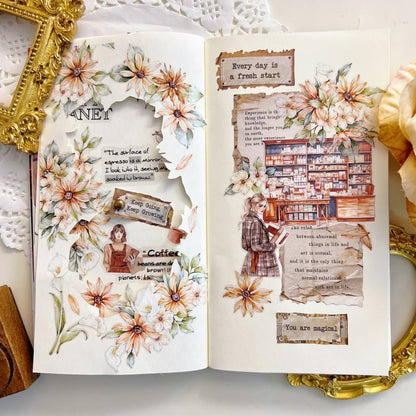 ANET
"The surface of
espresso is a mirror
I look like it, seeing
soaked in brown"
Keep Going
Keep Growing
"Coffee
beans are
brown
planets
Every day is
a fresh start
Experience is the
thing that brings
knowledge,
and the longer you
on earth,
the more experience
you
between abnormal
things in life and
art is normal,
and it is the only thing
that maintains
normal relations
with art in life.
You are magical